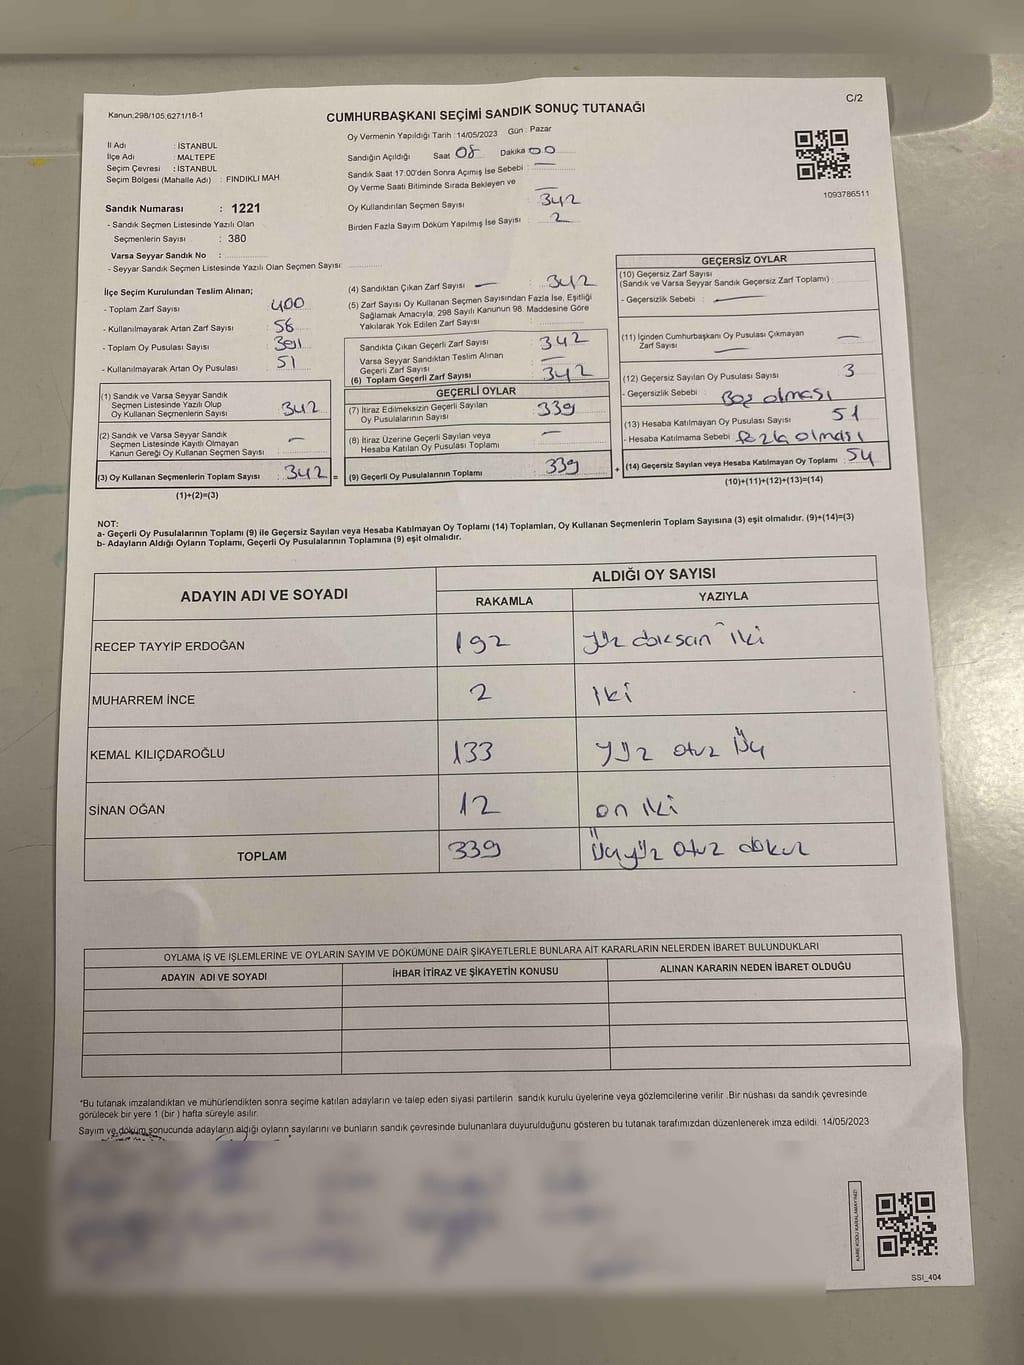 C/2
Kanun;298/105;6271/16-1
CUMHURBAŞKANI SEÇİMİ SANDIK SONUÇ TUTANAĞI
Oy Vermenin Yapıldığı Tarih :14/05/2023 Gün : Pazar
İl Adı : İSTANBUL
İlçe Adı : MALTEPE
Seçim Çevresi : İSTANBUL
Seçim Bölgesi (Mahalle Adı) : FINDIKLI MAH
Sandığın Açıldığı Saat 08 Dakika 00
Sandık Saat 17:00'den Sonra Açımış İse Sebebi : —
Oy Verme Saati Bitiminde Sırada Bekleyen ve —
Oy Kullandırılan Seçmen Sayısı : 342
Birden Fazla Sayım Döküm Yapılmış İse Sayısı : 2
1093786511
Sandık Numarası : 1221
- Sandık Seçmen Listesinde Yazılı Olan
Seçmenlerin Sayısı : 380
Varsa Seyyar Sandık No :
- Seyyar Sandık Seçmen Listesinde Yazılı Olan Seçmen Sayısı:
İlçe Seçim Kurulundan Teslim Alınan;
- Toplam Zarf Sayısı : 400
- Kullanılmayarak Artan Zarf Sayısı : 56
- Toplam Oy Pusulası Sayısı : 391
- Kullanılmayarak Artan Oy Pusulası : 51
(1) Sandık ve Varsa Seyyar Sandık
Seçmen Listesinde Yazılı Olup
Oy Kullanan Seçmenlerin Sayısı : 342
(2) Sandık ve Varsa Seyyar Sandık
Seçmen Listesinde Kayıtlı Olmayan
Kanun Gereği Oy Kullanan Seçmen Sayısı : —
(3) Oy Kullanan Seçmenlerin Toplam Sayısı : 342 =
(1)+(2)=(3)
(4) Sandıktan Çıkan Zarf Sayısı — : 342
(5) Zarf Sayısı Oy Kullanan Seçmen Sayısından Fazla İse, Eşitliği
Sağlamak Amacıyla, 298 Sayılı Kanunun 98. Maddesine Göre
Yakılarak Yok Edilen Zarf Sayısı :
Sandıkta Çıkan Geçerli Zarf Sayısı : 342
Varsa Seyyar Sandıktan Teslim Alınan
Geçerli Zarf Sayısı : —
(6) Toplam Geçerli Zarf Sayısı : 342
GEÇERLİ OYLAR
(7) İtiraz Edilmeksizin Geçerli Sayılan
Oy Pusulalarının Sayısı : 339
(8) İtiraz Üzerine Geçerli Sayılan veya
Hesaba Katılan Oy Pusulası Toplamı : —
(9) Geçerli Oy Pusulalarının Toplamı : 339 +
GEÇERSİZ OYLAR
(10) Geçersiz Zarf Sayısı
(Sandık ve Varsa Seyyar Sandık Geçersiz Zarf Toplamı) :
- Geçersizlik Sebebi : —
(11) İçinden Cumhurbaşkanı Oy Pusulası Çıkmayan
Zarf Sayısı — : —
(12) Geçersiz Sayılan Oy Pusulası Sayısı : 3
- Geçersizlik Sebebi : Boş olması
(13) Hesaba Katılmayan Oy Pusulası Sayısı : 51
- Hesaba Katılmama Sebebi : fazla olması
(14) Geçersiz Sayılan veya Hesaba Katılmayan Oy Toplamı : 54
(10)+(11)+(12)+(13)=(14)
NOT:
a- Geçerli Oy Pusulalarının Toplamı (9) ile Geçersiz Sayılan veya Hesaba Katılmayan Oy Toplamı (14) Toplamları, Oy Kullanan Seçmenlerin Toplam Sayısına (3) eşit olmalıdır. (9)+(14)=(3)
b- Adayların Aldığı Oyların Toplamı, Geçerli Oy Pusulalarının Toplamına (9) eşit olmalıdır.
ADAYIN ADI VE SOYADI ALDIĞI OY SAYISI
RAKAMLA YAZIYLA
RECEP TAYYİP ERDOĞAN 192 yüz doksan iki
MUHARREM İNCE 2 iki
KEMAL KILIÇDAROĞLU 133 yüz otuz üç
SİNAN OĞAN 12 on iki
TOPLAM 339 Üçyüz otuz dokuz
OYLAMA İŞ VE İŞLEMLERİNE VE OYLARIN SAYIM VE DÖKÜMÜNE DAİR ŞİKAYETLERLE BUNLARA AİT KARARLARIN NELERDEN İBARET BULUNDUKLARI
ADAYIN ADI VE SOYADI İHBAR İTİRAZ VE ŞİKAYETİN KONUSU ALINAN KARARIN NEDEN İBARET OLDUĞU
*Bu tutanak imzalandıktan ve mühürlendikten sonra seçime katılan adayların ve talep eden siyasi partilerin sandık kurulu üyelerine veya gözlemcilerine verilir .Bir nüshası da sandık çevresinde
görülecek bir yere 1 (bir ) hafta süreyle asılır.
Sayım ve döküm sonucunda adayların aldığı oyların sayılarını ve bunların sandık çevresinde bulunanlara duyurulduğunu gösteren bu tutanak tarafımızdan düzenlenerek imza edildi. 14/05/2023
KARE KODU KARALAMAYINIZ!
SSI_404